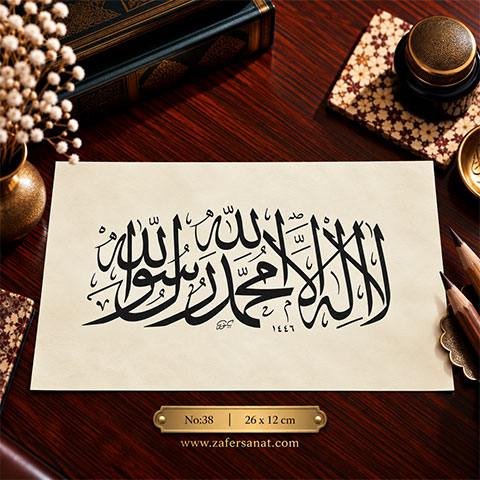 لا اله الا الله محمد رسول الله
١٤٤٦
No:38 | 26 x 12 cm
www.zafersanat.com